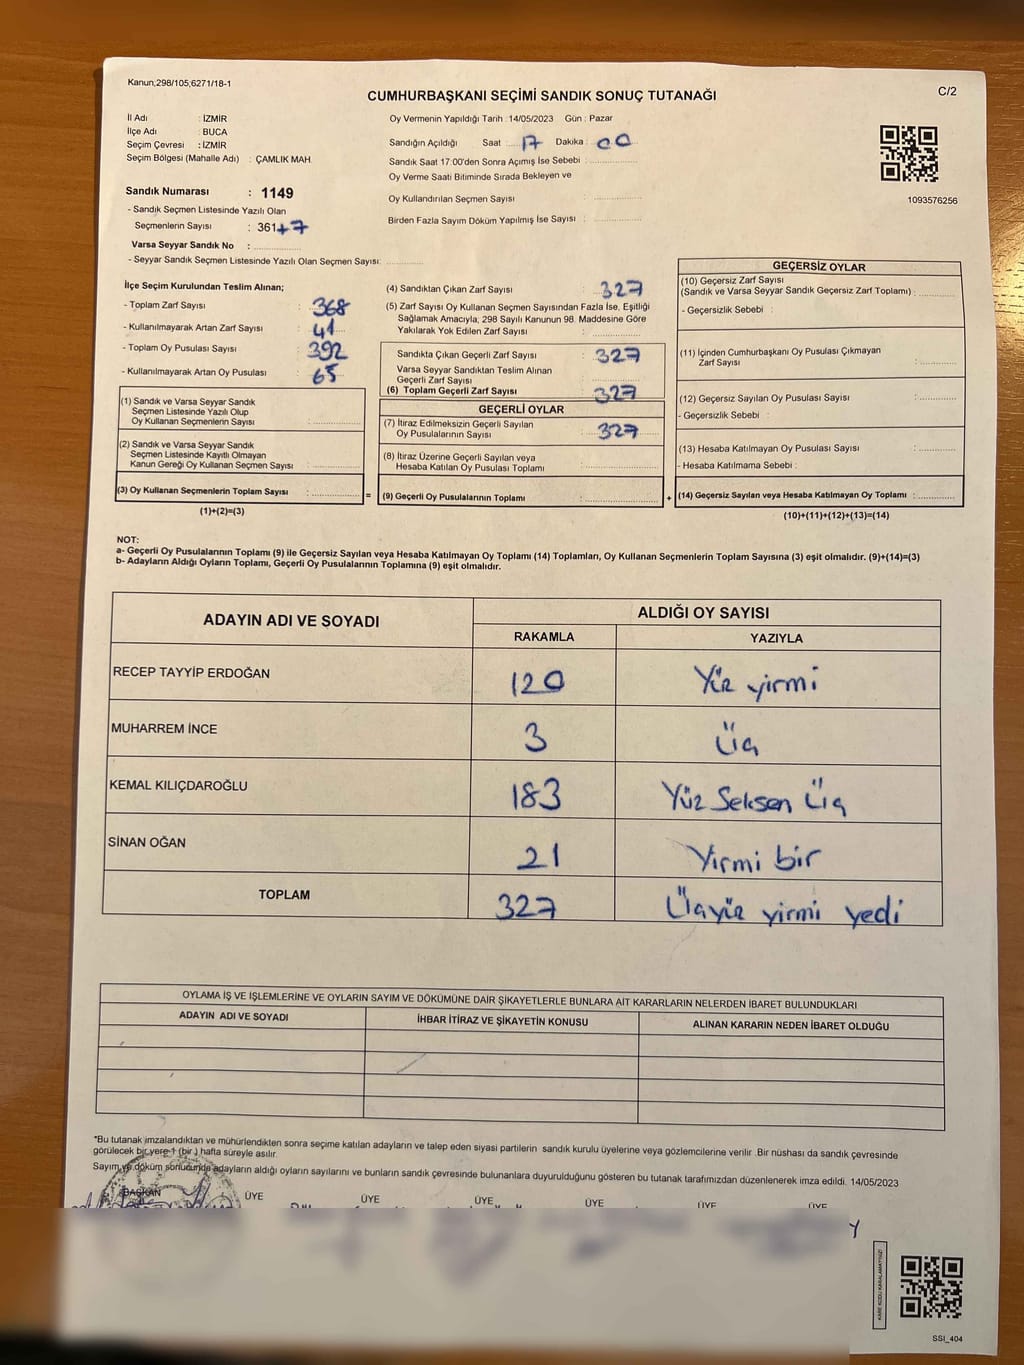 Kanun,298/105,6271/18-1
C/2
CUMHURBAŞKANI SEÇİMİ SANDIK SONUÇ TUTANAĞI
İl Adı : İZMİR
İlçe Adı : BUCA
Seçim Çevresi : İZMİR
Seçim Bölgesi (Mahalle Adı) : ÇAMLIK MAH.
Sandık Numarası : 1149
- Sandık Seçmen Listesinde Yazılı Olan
Seçmenlerin Sayısı : 361+7
Varsa Seyyar Sandık No :
- Seyyar Sandık Seçmen Listesinde Yazılı Olan Seçmen Sayısı:
Oy Vermenin Yapıldığı Tarih : 14/05/2023 Gün : Pazar
Sandığın Açıldığı Saat : 17 Dakika : 00
Sandık Saat 17:00'den Sonra Açımış İse Sebebi :
Oy Verme Saati Bitiminde Sırada Bekleyen ve
Oy Kullandırılan Seçmen Sayısı :
Birden Fazla Sayım Döküm Yapılmış İse Sayısı :
1093576256
İlçe Seçim Kurulundan Teslim Alınan;
- Toplam Zarf Sayısı : 368
- Kullanılmayarak Artan Zarf Sayısı : 41
- Toplam Oy Pusulası Sayısı : 392
- Kullanılmayarak Artan Oy Pusulası : 65
(1) Sandık ve Varsa Seyyar Sandık
Seçmen Listesinde Yazılı Olup
Oy Kullanan Seçmenlerin Sayısı :
(2) Sandık ve Varsa Seyyar Sandık
Seçmen Listesinde Kayıtlı Olmayan
Kanun Gereği Oy Kullanan Seçmen Sayısı :
(3) Oy Kullanan Seçmenlerin Toplam Sayısı : =
(1)+(2)=(3)
(4) Sandıktan Çıkan Zarf Sayısı : 327
(5) Zarf Sayısı Oy Kullanan Seçmen Sayısından Fazla İse, Eşitliği
Sağlamak Amacıyla, 298 Sayılı Kanunun 98. Maddesine Göre
Yakılarak Yok Edilen Zarf Sayısı :
Sandıkta Çıkan Geçerli Zarf Sayısı : 327
Varsa Seyyar Sandıktan Teslim Alınan
Geçerli Zarf Sayısı :
(6) Toplam Geçerli Zarf Sayısı : 327
GEÇERLİ OYLAR
(7) İtiraz Edilmeksizin Geçerli Sayılan
Oy Pusulalarının Sayısı : 327
(8) İtiraz Üzerine Geçerli Sayılan veya
Hesaba Katılan Oy Pusulası Toplamı :
(9) Geçerli Oy Pusulalarının Toplamı : +
GEÇERSİZ OYLAR
(10) Geçersiz Zarf Sayısı
(Sandık ve Varsa Seyyar Sandık Geçersiz Zarf Toplamı) :
- Geçersizlik Sebebi :
(11) İçinden Cumhurbaşkanı Oy Pusulası Çıkmayan
Zarf Sayısı :
(12) Geçersiz Sayılan Oy Pusulası Sayısı :
- Geçersizlik Sebebi :
(13) Hesaba Katılmayan Oy Pusulası Sayısı :
- Hesaba Katılmama Sebebi :
(14) Geçersiz Sayılan veya Hesaba Katılmayan Oy Toplamı :
(10)+(11)+(12)+(13)=(14)
NOT:
a- Geçerli Oy Pusulalarının Toplamı (9) ile Geçersiz Sayılan veya Hesaba Katılmayan Oy Toplamı (14) Toplamları, Oy Kullanan Seçmenlerin Toplam Sayısına (3) eşit olmalıdır. (9)+(14)=(3)
b- Adayların Aldığı Oyların Toplamı, Geçerli Oy Pusulalarının Toplamına (9) eşit olmalıdır.
ADAYIN ADI VE SOYADI
ALDIĞI OY SAYISI
RAKAMLA YAZIYLA
RECEP TAYYİP ERDOĞAN 120 Yüz yirmi
MUHARREM İNCE 3 Üç
KEMAL KILIÇDAROĞLU 183 Yüz Seksen Üç
SİNAN OĞAN 21 Yirmi bir
TOPLAM 327 Üçyüz yirmi yedi
OYLAMA İŞ VE İŞLEMLERİNE VE OYLARIN SAYIM VE DÖKÜMÜNE DAİR ŞİKAYETLERLE BUNLARA AİT KARARLARIN NELERDEN İBARET BULUNDUKLARI
ADAYIN ADI VE SOYADI İHBAR İTİRAZ VE ŞİKAYETİN KONUSU ALINAN KARARIN NEDEN İBARET OLDUĞU
*Bu tutanak imzalandıktan ve mühürlendikten sonra seçime katılan adayların ve talep eden siyasi partilerin sandık kurulu üyelerine veya gözlemcilerine verilir. Bir nüshası da sandık çevresinde
görülecek bir yere 1 (bir ) hafta süreyle asılır.
Sayım ve döküm sonucunda adayların aldığı oyların sayılarını ve bunların sandık çevresinde bulunanlara duyurulduğunu gösteren bu tutanak tarafımızdan düzenlenerek imza edildi. 14/05/2023
BAŞKAN ÜYE ÜYE ÜYE ÜYE ÜYE ÜYE
KARE KODU KARALAMAYINIZ!
SSI_404